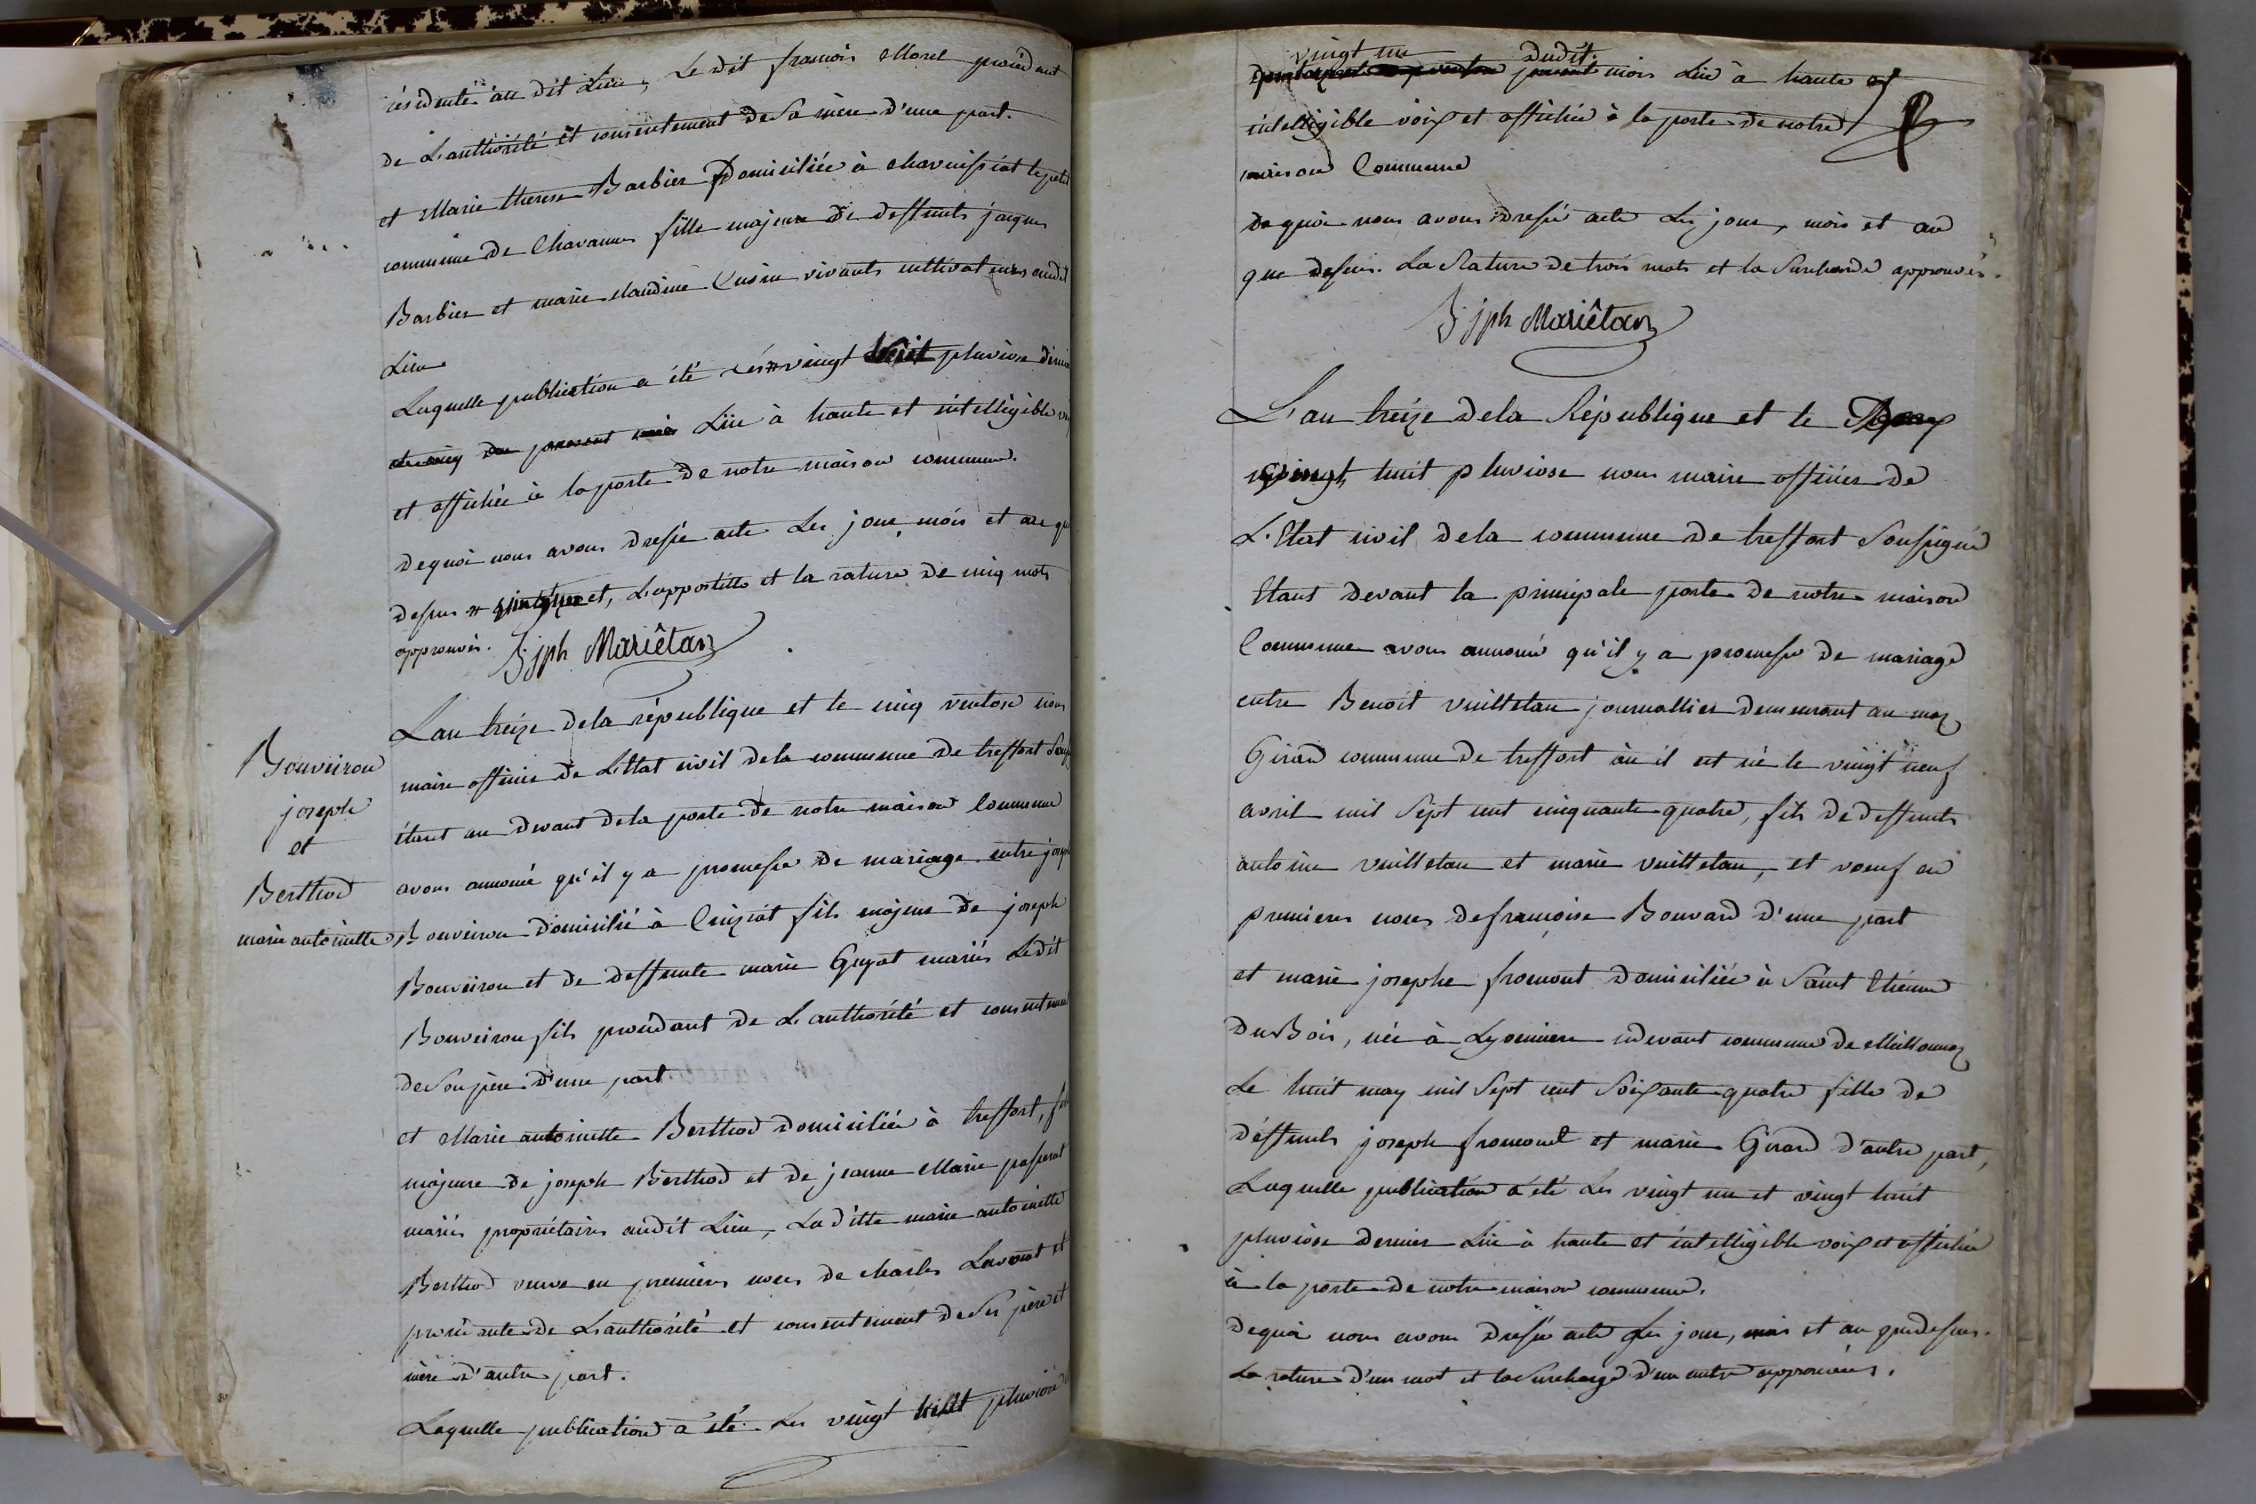 résidente au dit Lieu, Le dit francois Morel procédant
de L'authorité et consentement de Sa mère d'une part.
et Marie therese Barbier Domiciliée à charnissiat le petit
commune de Chavannes fille majeure de deffunts jacques
Barbier et marie claudine Cusin vivants cultivateurs audit
Lieu
Laquelle publication a été vingt huit pluviose dernier
du present mois Lüe à haute et intelligible voix
et affichée à la porte de notre maison commune.
dequoi nous avons dressé acte Les jour, mois et an que
dessus et, L'appostille et la rature de cinq mots
approuvés. Jph Mariêtan
Bouveiron
joseph
et
Berthod
marie antoinette
L'an treize dela république et le cinq ventose nous
maire officier de L'Etat civil dela commune de treffort Sous
étant au devant dela porte de notre maison Commune
avons annoncé qu'il y a promesse de mariage entre joseph
Bouveiron domicilié à Cuiziat fils majeur de joseph
Bouveiron et de deffunte marie Guyot mariés Ledit
Bouveiron fils procédant de L'authorité et consentement
de Son père d'une part
et Marie antoinette Berthod domiciliée à treffort, fille
majeure de joseph Berthod et de jeanne Marie passerat
mariés propriétaires audit Lieu, La ditte marie antoinette
Berthod veuve en premieres noces de charles Lavenot et
procédante de L'authorité et consentement de Ses père et
mère d'autre part.
Laquelle publication a été Les vingt huit pluviose
vingt un dudit
present mois Lüe à haute et
intelligible voix et affichée à la porte de notre
maison Commune
de quoi nous avons dressé acte Les jour, mois et an
que dessus. La Rature de trois mots et la Surcharde approuvés.
Jph Mariêtan
L'an treize dela République et le
vingt huit pluviose nous maire officier de
L'Etat civil dela commune de treffort Soussigné
Etant devant la principale porte de notre maison
Commune avons annoncé qu'il y a promesse de mariage
entre Benoit vuilletan journallier demeurant au maz
Girard commune de treffort où il est né le vingt neuf
avril mil Sept cent cinquante quatre, fils de deffunts
antoine vuilletan et marie vuilletan, et voeuf en
premieres noces de françoise Bouvard d'une part
et marie josephe fromont domiciliée à Saint Etienne
DuBois, née à Lyonniere cidevant commune de Meillonnaz
Le huit may mil Sept cent Soixante quatre fille de
déffunts joseph fromont et marie Girard d'autre part,
Laquelle publication a été Les vingt un et vingt huit
pluviose dernier Lüe à haute et intelligible voix et affichée
à la porte de notre maison commune.
dequoi nous avons dressé acte Les jour, mois et an que dessus.
La rature d'un mot et la Surcharge d'un autre approuvées.